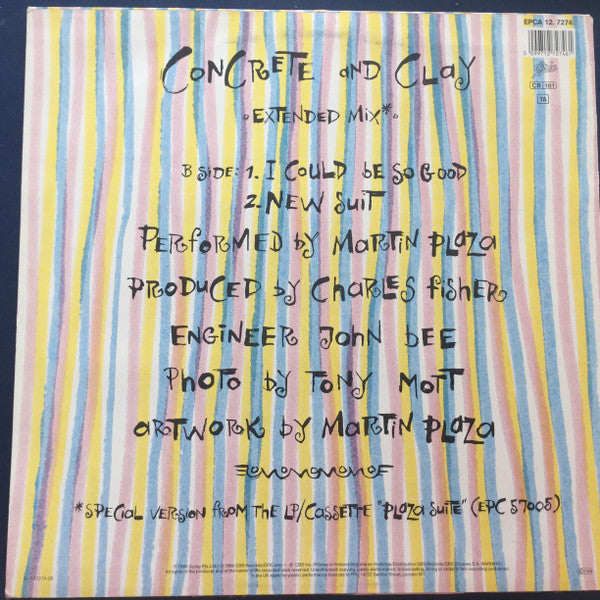 EPCA 12. 7274
5 099712 727461
Epic
CB 101
TA
CONCRETE AND CLAY
EXTENDED MIX*
B SIDE: 1. I COULD BE SO GOOD
2. NEW SUIT
PERFORMED BY MARTIN PLAZA
PRODUCED BY CHARLES FISHER
ENGINEER JOHN BEE
PHOTO BY TONY MOTT
ARTWORK BY MARTIN PLAZA
*SPECIAL VERSION FROM THE LP/CASSETTE "PLAZA SUITE" (EPC 57005)